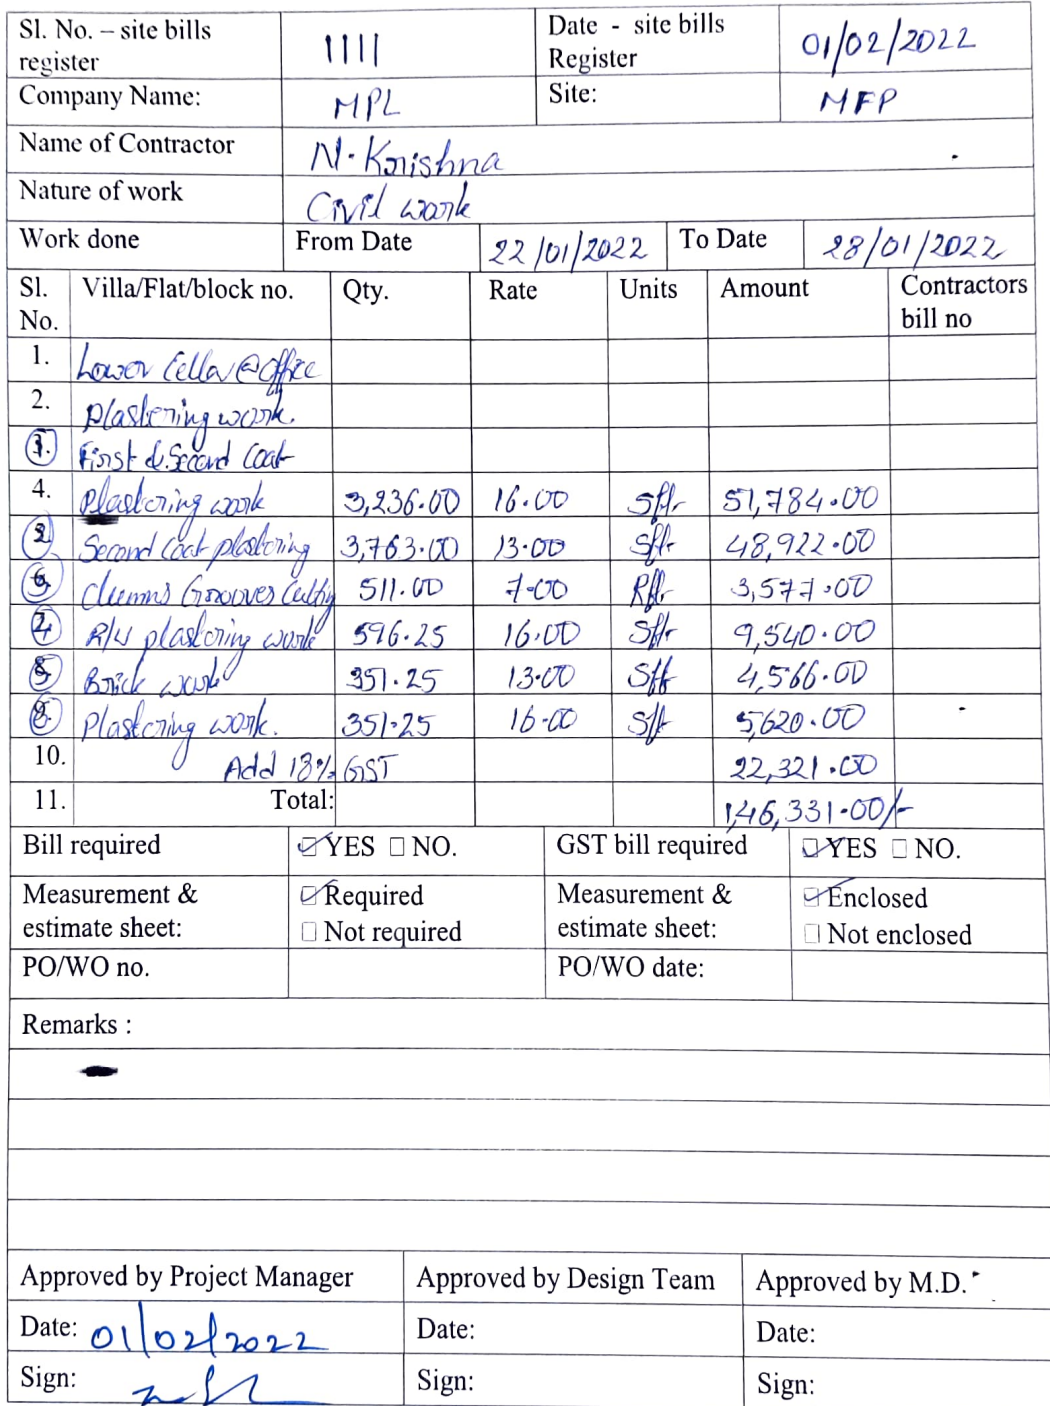 Sl. No. – site bills register 1111 Date - site bills Register 01/02/2022
Company Name: MPL Site: MFP
Name of Contractor N. Krishna
Nature of work Civil work
Work done From Date 22/01/2022 To Date 28/01/2022
Sl. No. Villa/Flat/block no. Qty. Rate Units Amount Contractors bill no
1. Lower Cellar @ office
2. Plastering work.
1. First & Second Coat
4. Plastering work 3,236.00 16.00 Sft. 51,784.00
2 Second Coat plastering 3,763.00 13.00 Sft. 48,922.00
3 Clumns Grooves Cutting 511.00 7.00 Rft. 3,577.00
4 R/W plastering work 596.25 16.00 Sft 9,540.00
5 Brick work 351.25 13.00 Sft 4,566.00
6 Plastering work. 351.25 16.00 Sft 5,620.00
10. Add 18% GST 22,321.00
11. Total: 1,46,331.00/-
Bill required YES NO. GST bill required YES NO.
Measurement & estimate sheet: Required Not required Measurement & estimate sheet: Enclosed Not enclosed
PO/WO no. PO/WO date:
Remarks :
Approved by Project Manager Approved by Design Team Approved by M.D.
Date: 01/02/2022 Date: Date:
Sign: Sign: Sign: